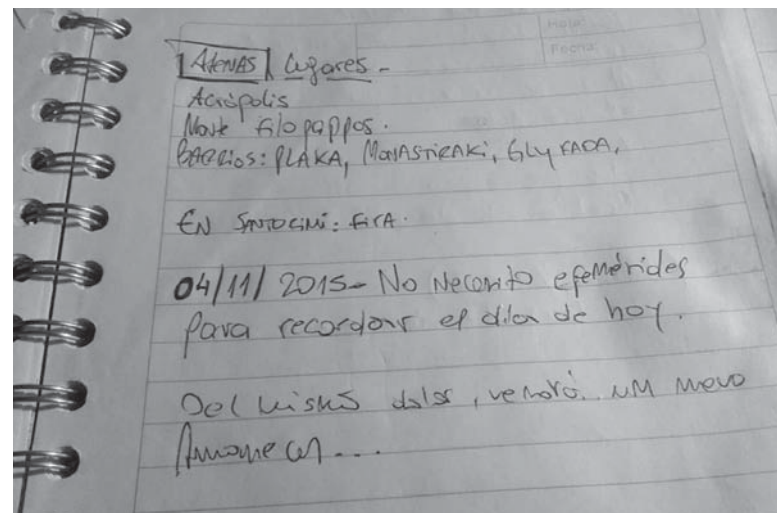 Hoja:
Fecha:
Atenas Lugares -
Acrópolis
Monte Filopappos.
BARRIOS: PLAKA, MONASTIRAKI, GLYFADA,
EN SANTORINI: FIRA.
04/11/2015 - No Necesito efemérides
para recordar el día de hoy.
Del mismo dolor, vendrá un nuevo
Amanecer...